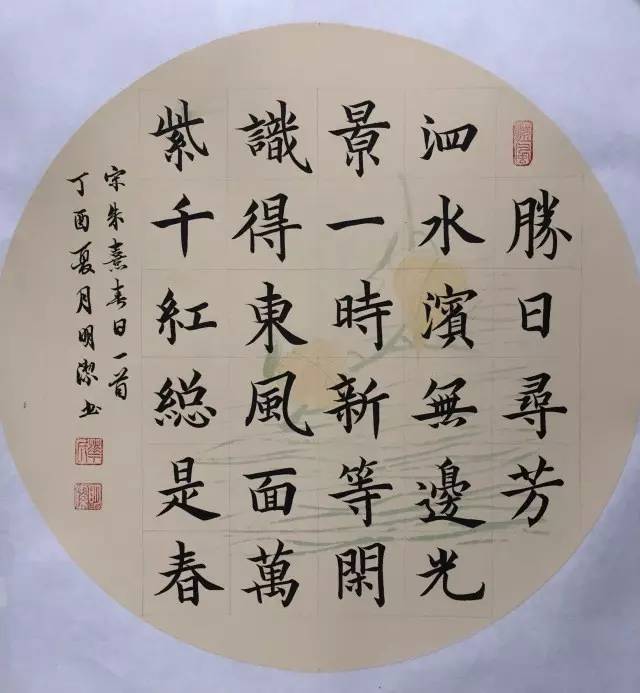 勝日尋芳
泗水濱無邊光
景一時新等閑
識得東風面萬
紫千紅総是春
宋朱熹春日一首
丁酉夏月明潔书